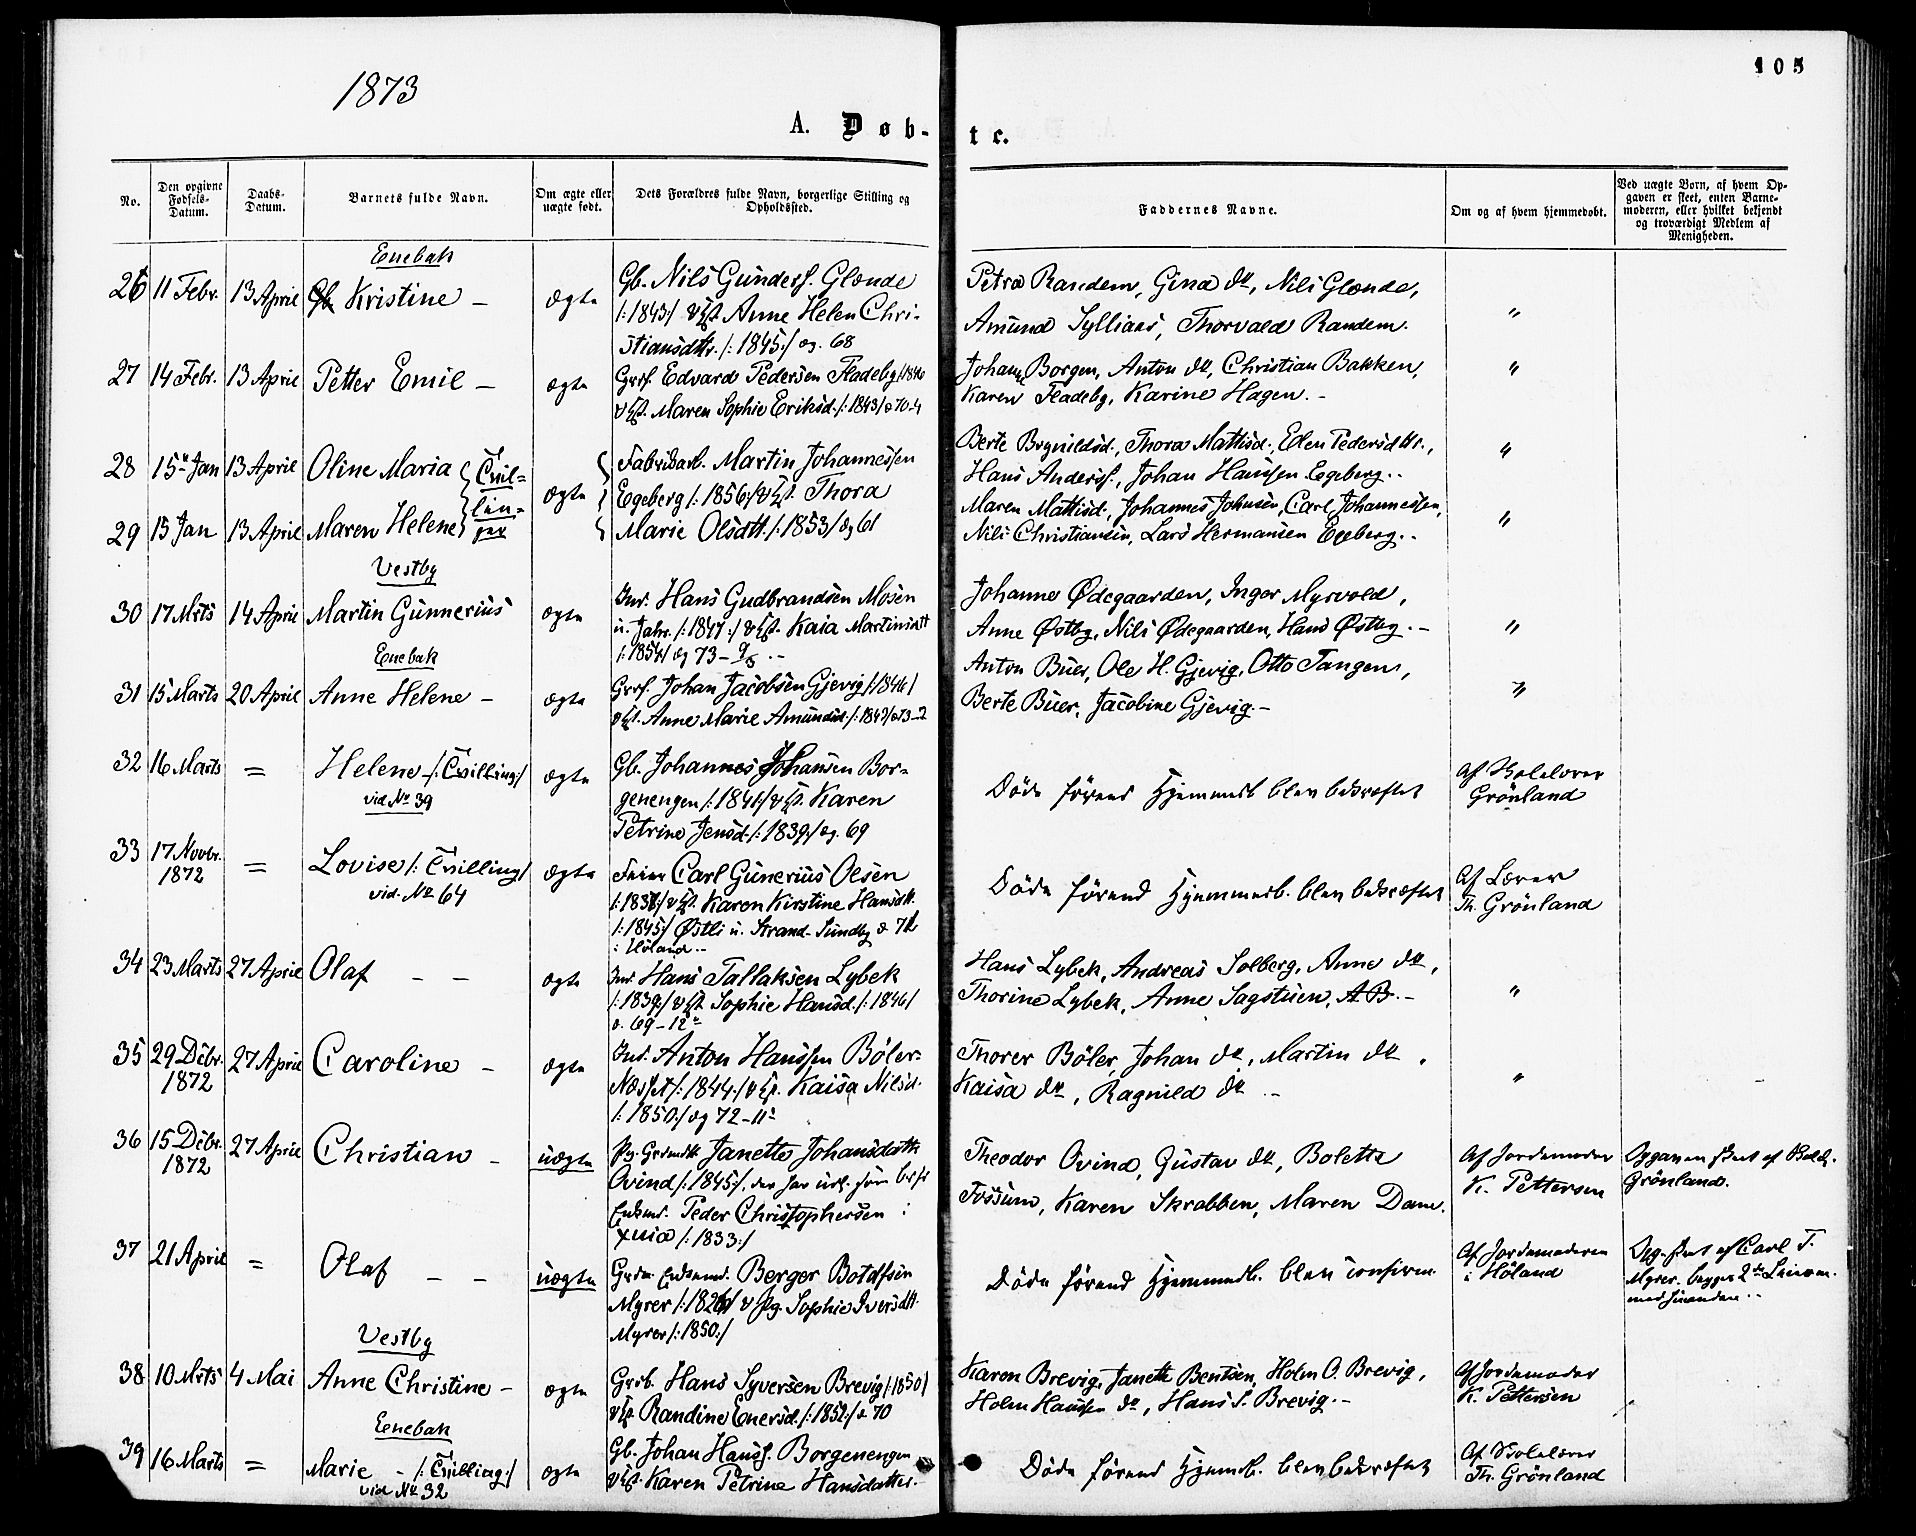 1873
105
A. Døb-
te.
No.
Den opgivne Fødsels-Datum.
Daabs-Datum.
Barnets fulde Navn.
Om ægte eller uægte født.
Dets Forældres fulde Navn, borgerlige Stilling og Opholdssted.
Faddernes Navne.
Om og af hvem hjemmedøbt.
Ved uægte Børn, af hvem Opgaven er skeet, enten Barnemoderen, eller hvilket bekjendt og troværdigt Medlem af Menigheden.
Enebak
26 11 Febr. 13 April Kristine – ægte
Gb. Nils Gunders. Glende
/:1843:/ & Hst. Anne Helen Chri-
stiansdttr. /:1845:/ æg. 68
Petra Randem, Gina do, Nils Glende,
Amund Sylliaas, Thorvald Randem.
"
27 14 Febr. 13 April Petter Emil – ægte
Grf. Edvard Pedersen Fladeby /:1846
& Hst. Maren Sophie Eriksd. /:1843/ æ 70-4
Johan Borgen, Anton do, Christian Bakken,
Karen Fladeby, Karine Hagen. –
"
28 15de Jan 13 April Oline Maria Tvil-
29 15 Jan 13 April Maren Helene lin-
ger
ægte
Fabrikarb. Martin Johannessen
Egeberg /:1856:/ & Hst. Thora
Marie Olsdtt. /:1853/ æg 61
Berte Brynildsd., Thora Mattisd., Elen Pedersdttr.,
Hans Anderss., Johan Hansen Egeberg..
"
Maren Mattisd., Johannes Johnsen, Carl Johannessen,
Nils Christiansen, Lars Hermansen Egeberg..
"
Vestby
30 17 Mrts 14 April Martin Gunnerius ægte
Ind. Hans Gudbrandsen Mosen
u. Jahr. /:1847:/ & Hst. Kaia Martinsdtt
/:1854/ æg 73 –
Johanne Ødegaarden, Inger Myrvold,
Anne Østby, Nils Ødegaarden, Hans Østby. –
"
Enebak
31 15 Marts 20 April Anne Helene – ægte
Grf. Johan Jacobsen Gjevig /:1846/
& Hst. Anne Marie Amundsd. /:1843/ æ 73-2
Anton Buer, Ole H. Gjevig, Otto Tangen,
Berte Buer, Jacobine Gjevig. –
"
32 16 Marts = Helene – /:Tvilling:/
vid No 39
ægte
Gb. Johannes Johansen Bor-
genengen /:1841:/ & Hst. Karen
Petrine Jensd. /:1839:/ æg. 69
Døde førend Hjemmed. blev bekræftet
Af Skolelærer
Grönland
33 17 Novbr. 1872 = Lovise /:Tvilling/
vid. No 64
ægte
Feier Carl Gunerius Olsen
& Hst. Karen Kirstine Hansdt.
/:1845:/ Østli u. Strand-Sundby
i Høland –
Døde førend Hjemmed. blev bekræftet
Af Lærer
Th. Grönland
34 23 Marts 27 April Olaf – – ægte
Ind. Hans Tallaksen Lybek
/:1839:/ & Hst. Sophie Hansd. /:1846/
æ. 69 – 12
Hans Lybek, Andreas Solberg, Anne do,
Thorine Lybek, Anne Sagstuen, A.B. –
"
35 29 Dcbr. 1872 27 April Caroline – ægte
Ind. Anton Hanssen Bøler-
Næsset /:1844:/ & Hst. Kaisa Nilsd.
/:1850:/ æg 72 – 11
Thorer Böler, Johan do, Martin do,
Kaisa do, Ragnild do –
"
36 15 Dcbr. 1872 27 April Christian – uægte
Pg. Janette Johansdatt
Ovind /:1845:/,
Enkmd. Peder Christophersen i
Xnia /:1833:/
Theodor Ovind, Gustav do, Bolette
Fossum, Karen Skrabben, Maren Dam.
Af Jordemoder
K. Pettersen
Opgaven skeet af
Grönland.
37 21 April = Olaf – – uægte
Enkemd. Berger Botolfsen
Myrer & Pg. Sophie Iversdtt.
Myrer /:1850:/
Døde førend Hjemmed. blev confirm.
Af Jordemoderen
i Höland
Opg. skeet af Carl T.
Myrer. begges 2det Leierm.
med hinanden..
Vestby
38 10 Mrts 4 Mai Anne Christine – ægte
Grb. Hans Syversen Brevig /:1850/
& Hst. Randine Enersd. /:1852:/ æ 70
Karen Brevig, Janette Bentsen, Holm O. Brevig,
Holm Hanssen do, Hans S. Brevig. –
Af Jordemoder
K. Pettersen
Enebak
39 16 Marts = Marie – /:Tvilling:/
vid No 32
ægte
Gb. Johan Hanss. Borgenengen
& Hst. Karen Petrine Hansdatter.
Døde førend Hjemmed. blev bekræftet
Af Skolelærer
Th. Grönland